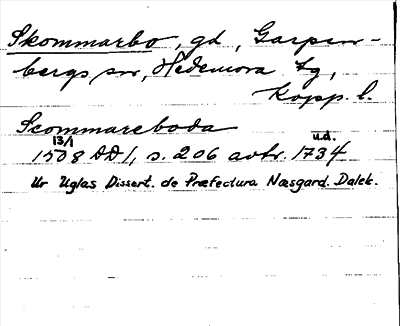 Skommarbo, gd, Garpen-
bergs sn, Hedemora tg,
Kopp. l.
Scommareboda
13/1 u.d.
1508 DD 1, s. 206 avtr. 1734
Ur Uglas Dissert. de Præfectura Næsgard. Dalek.